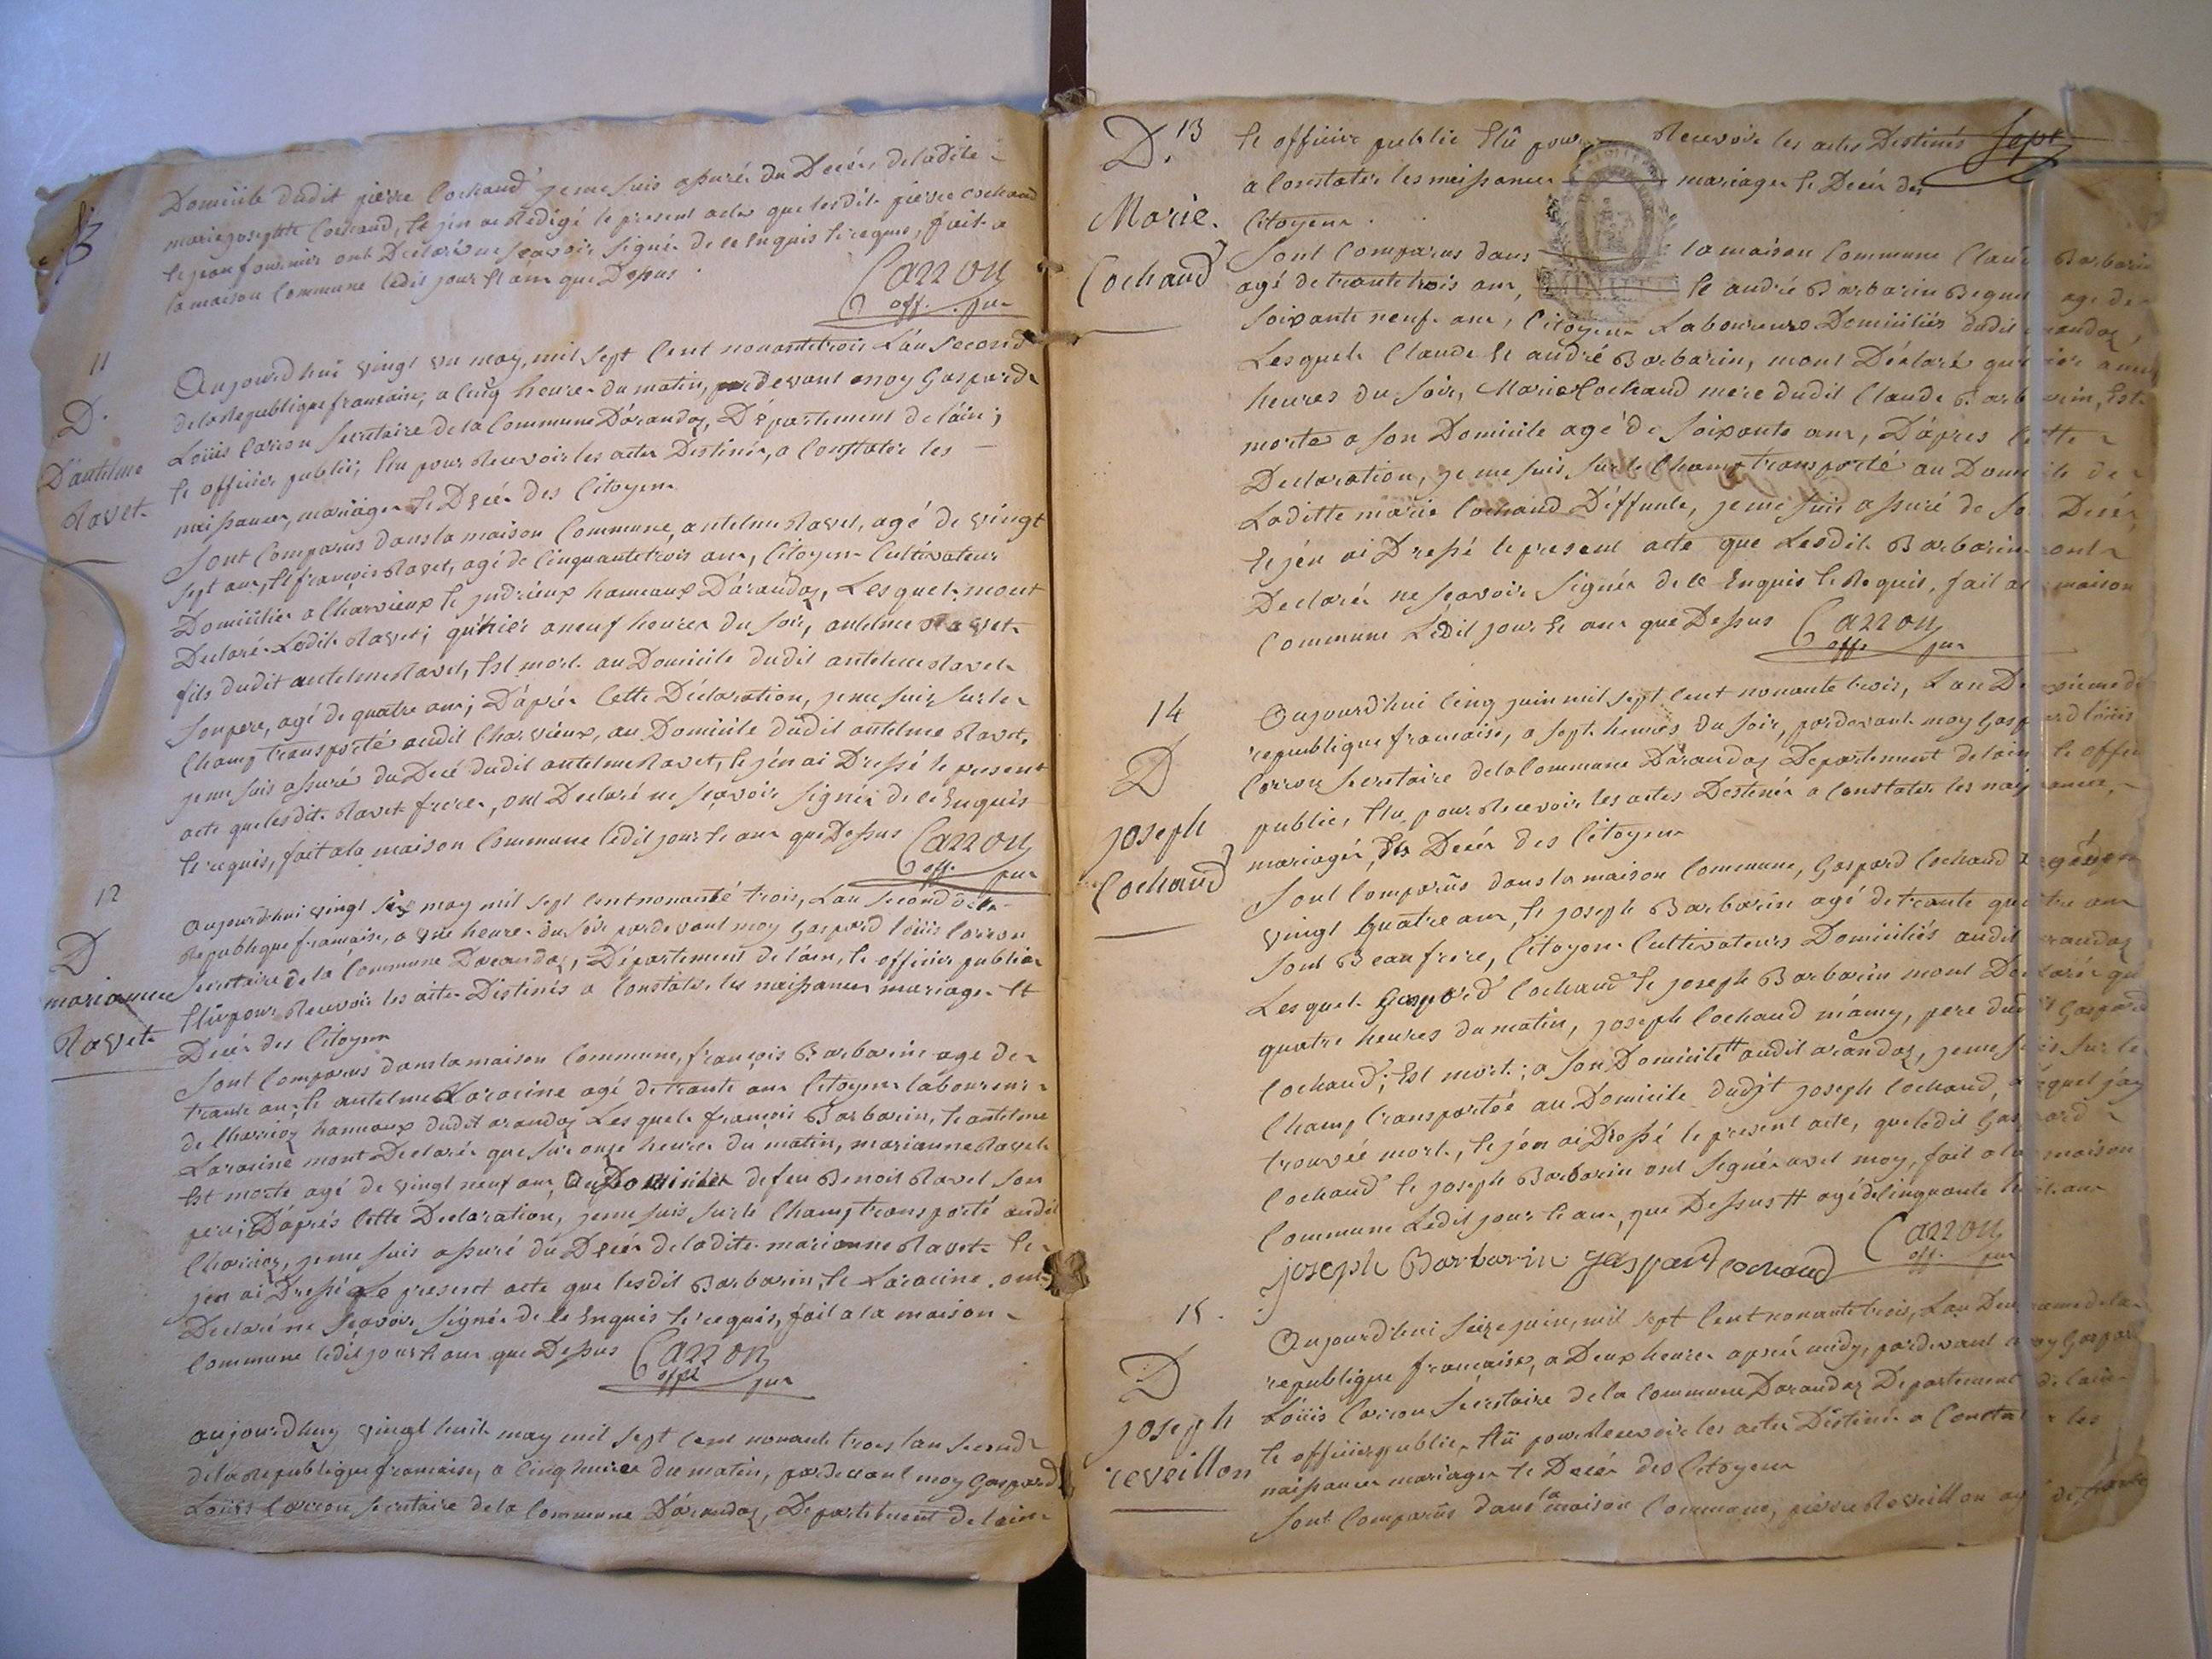 Domicile dudit pierre Cochaud je me suis assuré du Decés deladite
marie josephte Cochaud, et jén ai Rédigé le present acte que lesdits pierre cochaud
et jean fournier ont Declarés ne sçavoir signér de ce Enquis et requis, fait a
la maison Commune ledit jour et an que Dessus.
Carron
off. pur
11
D.
Dantelme
Ravet
Aujourdhui vingt un may, mil sept Cent nonantetrois Lán second
dela Republique francaise, a cinq heures du matin, pardevant moy Gaspard
Loüis Carron secretaire dela Commune Dárandas, Département de láin;
et officier public, Elu pour Recevoir les actes Destinés, a Constater les
naissances, mariages et Decés des Citoyens
Sont Comparus dans la maison Commune, antelme Ravet, agé de vingt
sept ans, et françois Ravet, agé de Cinquantetrois ans, Citoyens Cultivateurs
Domiciliés a Charvieux et judrieux hameaux Dárandas, Lesquels mont
Declaré Lesdits Ravet; qu'hier a neuf heures du soir, antelme Ravet
fils dudit antelme Ravet, Est mort au Domicile dudit antelme Ravet
son pere, agé de quatre ans; Dáprés Cette Déclaration, je me suis sur le
Champ transporté audit Charvieux, au Domicile dudit antelme Ravet,
je me suis assuré du Decé dudit antelme Ravet, et jén ai Dressé le present
acte que lesdits Ravet freres, ont Declaré ne sçavoir signér de cé Enquis
et requis, fait ala maison Commune ledit jour et an que Dessus
Carron
off. pur
12
D
marianne
Ravet
Aujourdhui vingt six may mil sept Cent nonanté trois, Lan second dela
Republique française, a une heure du soir pardevant moy Gaspard loüis Carron
Secretaire de la Commune Darandas, Département de láin, et officier public
Elû pour Recevoir les actes Distinés a Constater les naissances mariages et
Decés des Citoyens
Sont Comparus dans la maison Commune, françois Barbarin age de
trante an, et antelme Laracine agé de trante ans Citoyens laboureurs
de Charrios hameaux dudit arandas Lesquels françois Barbarin, et antelme
Laracine mont Declarés que sur onze heures du matin, marianne Ravet
Est morte agé de vingt neuf ans, au Domicile de feu Benoit Ravet son
pere; Dáprés Cette Declaration, je me suis sur le Champ transporté audit
Charrios, je me suis assuré du Decés deladite marianne Ravet et
jen ai Dressé Le present acte que lesdit Barbarin, et Laracine ont
Declaré ne sçavoir signér de ce Enquis et requis, fait a la maison
Commune ledit jour et an que Dessus
Carron
offe pur
aujourdhuy vingt huit may mil sept cent nonante trois lan second
dela Republique francaise, a cinq heures du matin, pardevant moy Gaspard
Louis Carron secretaire dela Commune Dárandas, Département de lain
13
D.
Marie
Cochaud
sept
et officier public Elû pour Recevoir les actes Destinés
a Constater les naissances mariages et Decés des
Citoyens.
Sont Comparus dans la maison Commune Claude Barbarin
agé de trantetrois ans, et andré Barbarin Begun age de
soixante neuf ans, Citoyens Laboureurs Domiciliés dudit arandas,
Lesquels Claude et andré Barbarin, mont Déclaré que hier a
heures du soir, Marie Cochaud mere dudit Claude Barbarin, Est
morte a son Domicile agé de soixante ans, Dápres Cette
Declaration, je me suis sur le Champ transporté au Domicile de
Laditte marie Cochaud Déffunte, je me suis assuré de son Decés,
et jén ai Dressé le present acte que Lesdits Barbarin ont
Declarés ne sçavoir signér de ce Enquis et Requis, fait a la maison
Commune Ledit jour et an que Dessus
Carron
off. pur
14
D
joseph
Cochaud
Aujourdhui Cinq juin mil sept Cent nonante trois, Lan Deuxieme de
republique francaise, a sept heures du soir, pardevant moy Gaspard loüis
Carron secretaire dela Commune Dárandas Département de lain et officier
public, Elu pour Recevoir les actes Destinés a Constater les naissances,
mariagés, et Decés des Citoyens
Sont Comparûs dans la maison Commune, Gaspard Cochaud agé de
vingt quatre ans, et joseph Barbarin agé de trante quattre ans
sont Beaufrere, Citoyens Cultivateurs Domiciliés audit arandas
Lesquels Gaspard Cochaud et joseph Barbarin mont Declarés qu
quatre heures du matin, joseph Cochaud mámy, pere dudit Gaspard
Cochaud; Est mort; a son Domicile # audit arandas, je me suis sur le
Champ transportée au Domicile dudit joseph Cochaud, Lequel jay
trouvéé mort, et jén ai Dressé le present acte, que ledit Gaspard
Cochaud et joseph Barbarin ont signés avet moy, fait a la maison
Commune Ledit jour et an, que Dessus # agé de Cinquante huit ans
joseph Barbarin gaspard cochaud
Carron
off. pur
15.
D
joseph
reveillon
Aujourdhui seize juin, mil sept Cent nonante trois, Lan Deuxieme dela
republique francaise, a Deux heures aprés midy, pardevant moy Gaspard
Loüis Carron secretaire dela Commune Darandas Departement de lain
et officier public, Elû pour Recevoir les actes Distinés a Constater les
naissances mariages et Decés des Citoyens
Sont Comparûs dans la maison Commune, pierre Reveillon agé de trante